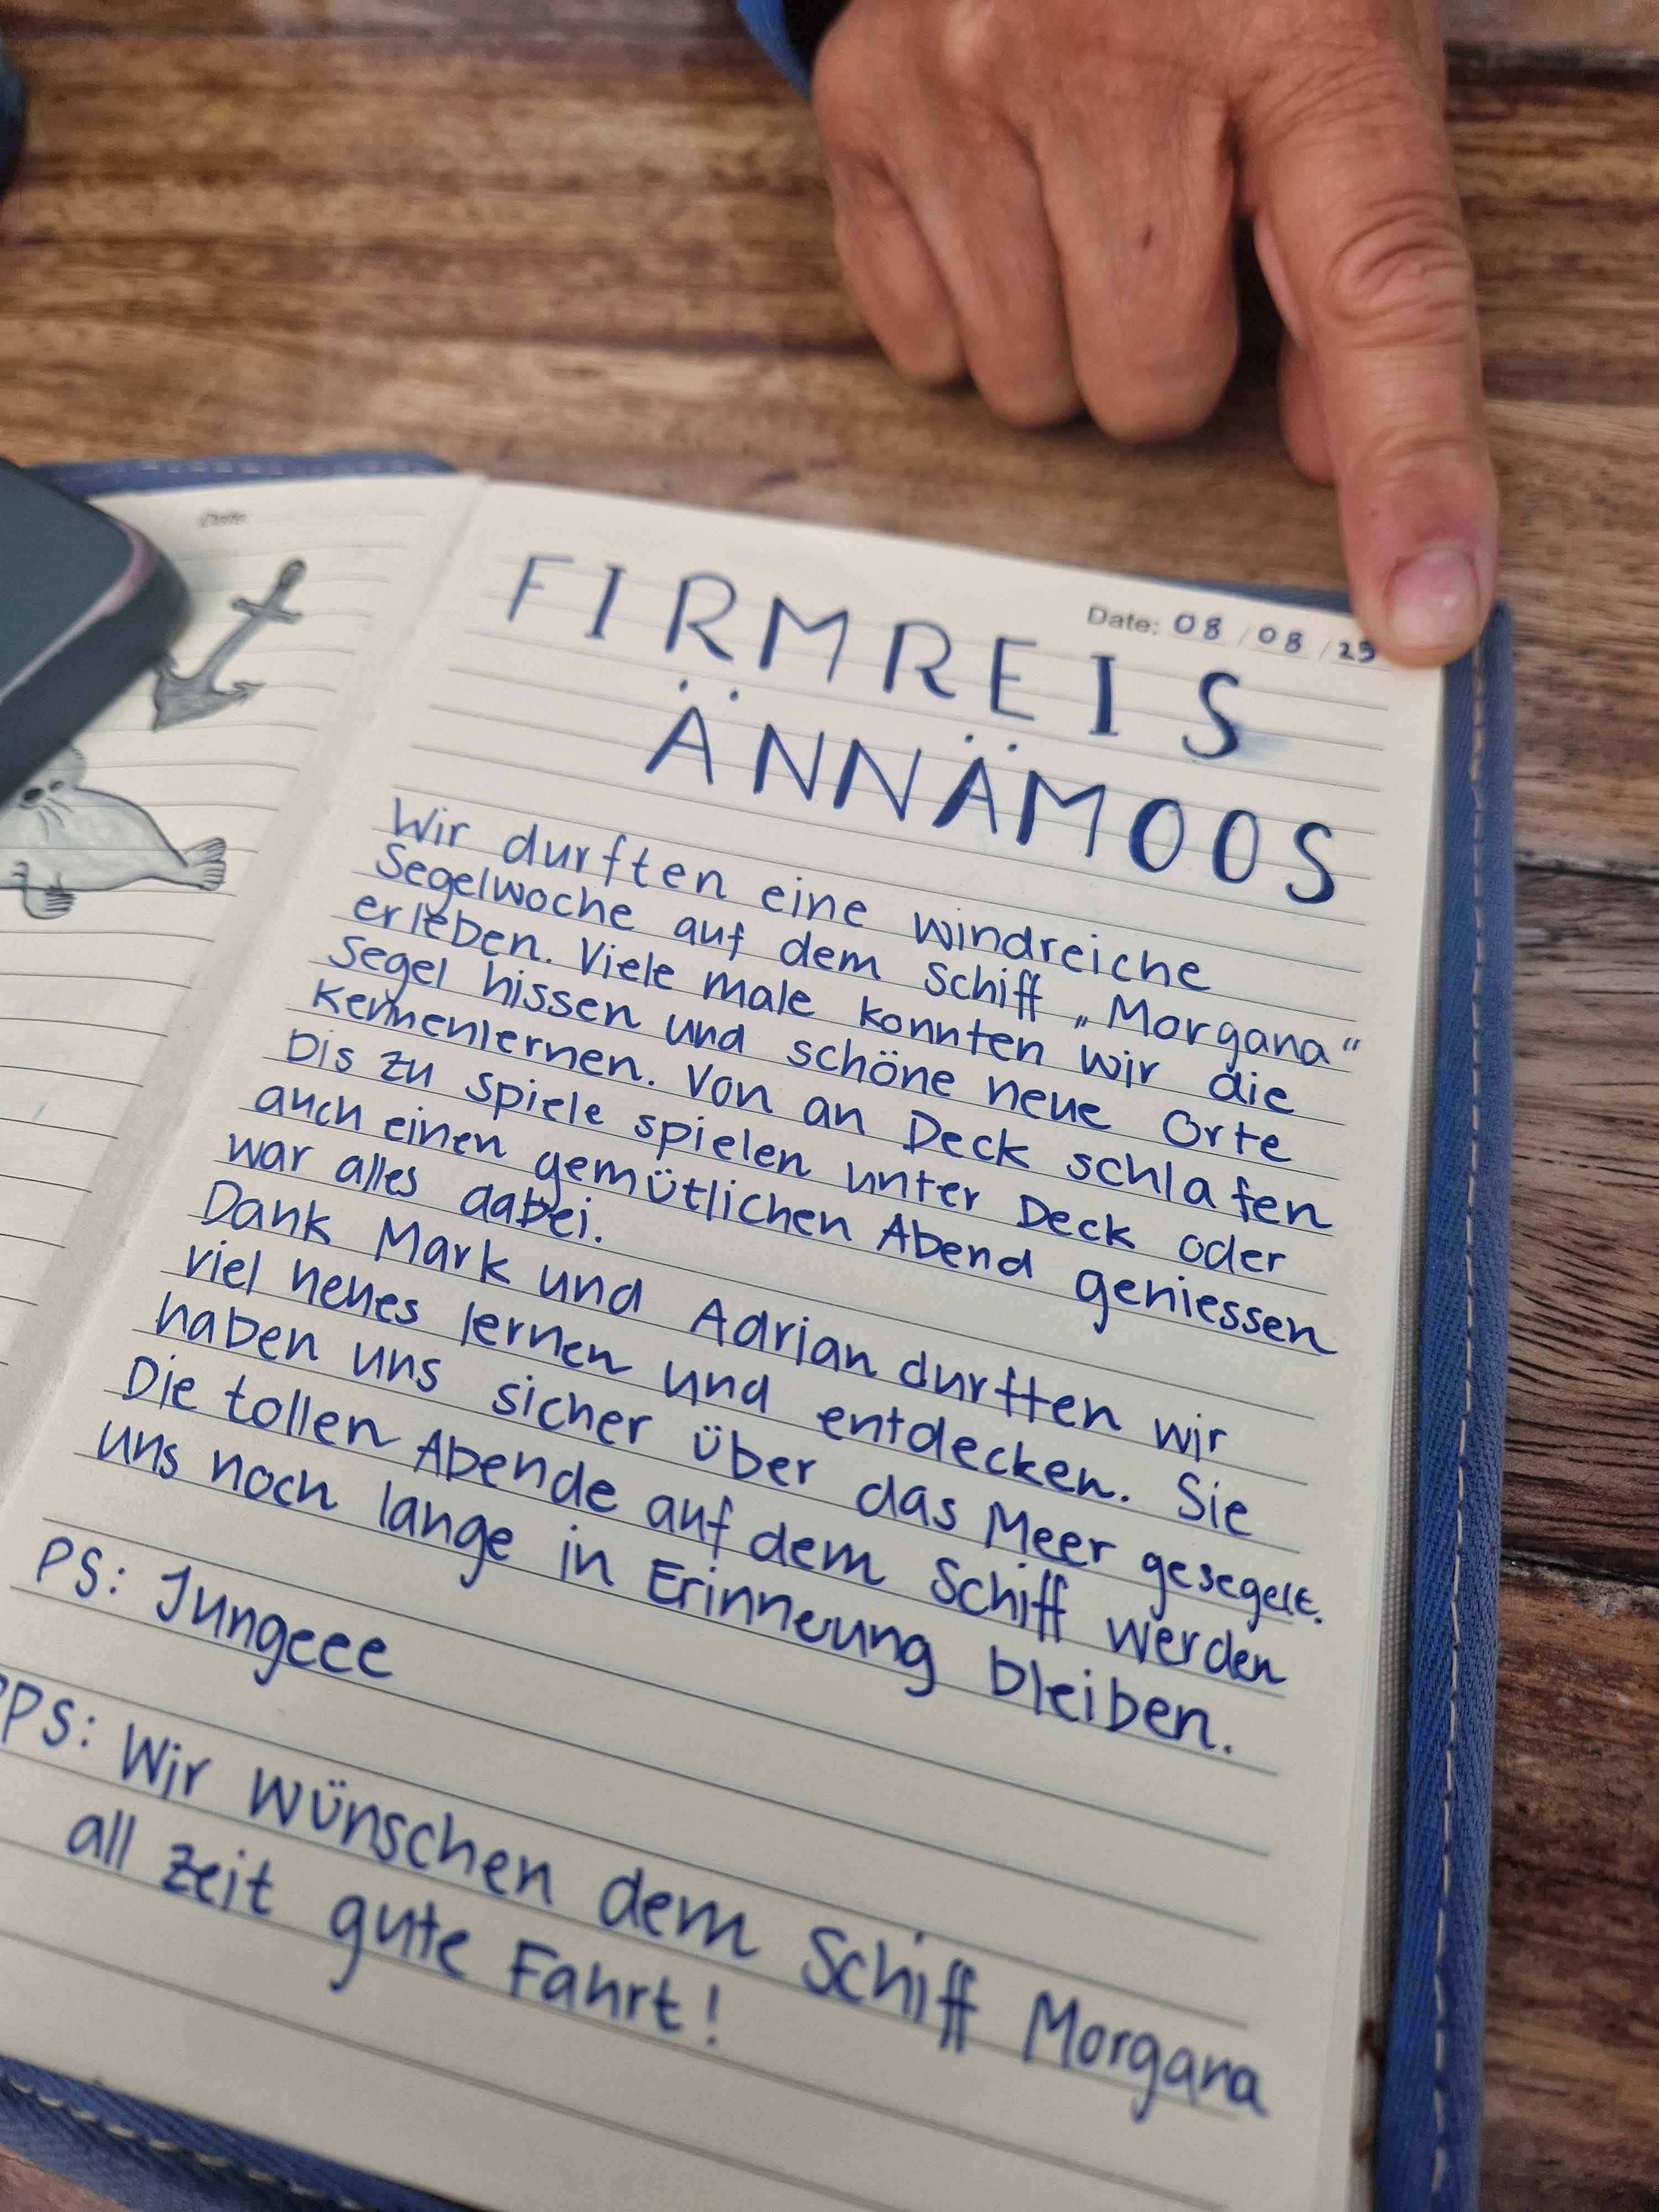 Date:
Date: 08/08/25
FIRMREIS
ÄNNÄMOOS
Wir durften eine windreiche
Segelwoche auf dem Schiff „Morgana“
erleben. Viele male konnten wir die
Segel hissen und schöne neue Orte
kennenlernen. Von an Deck schlafen
bis zu spiele spielen unter Deck oder
auch einen gemütlichen Abend geniessen
war alles dabei.
Dank Mark und Adrian durften wir
viel neues lernen und entdecken. Sie
haben uns sicher über das Meer gesegelt.
Die tollen Abende auf dem Schiff werden
uns noch lange in Erinnerung bleiben.
PS: Jungeee
PPS: Wir wünschen dem Schiff Morgana
all zeit gute Fahrt!